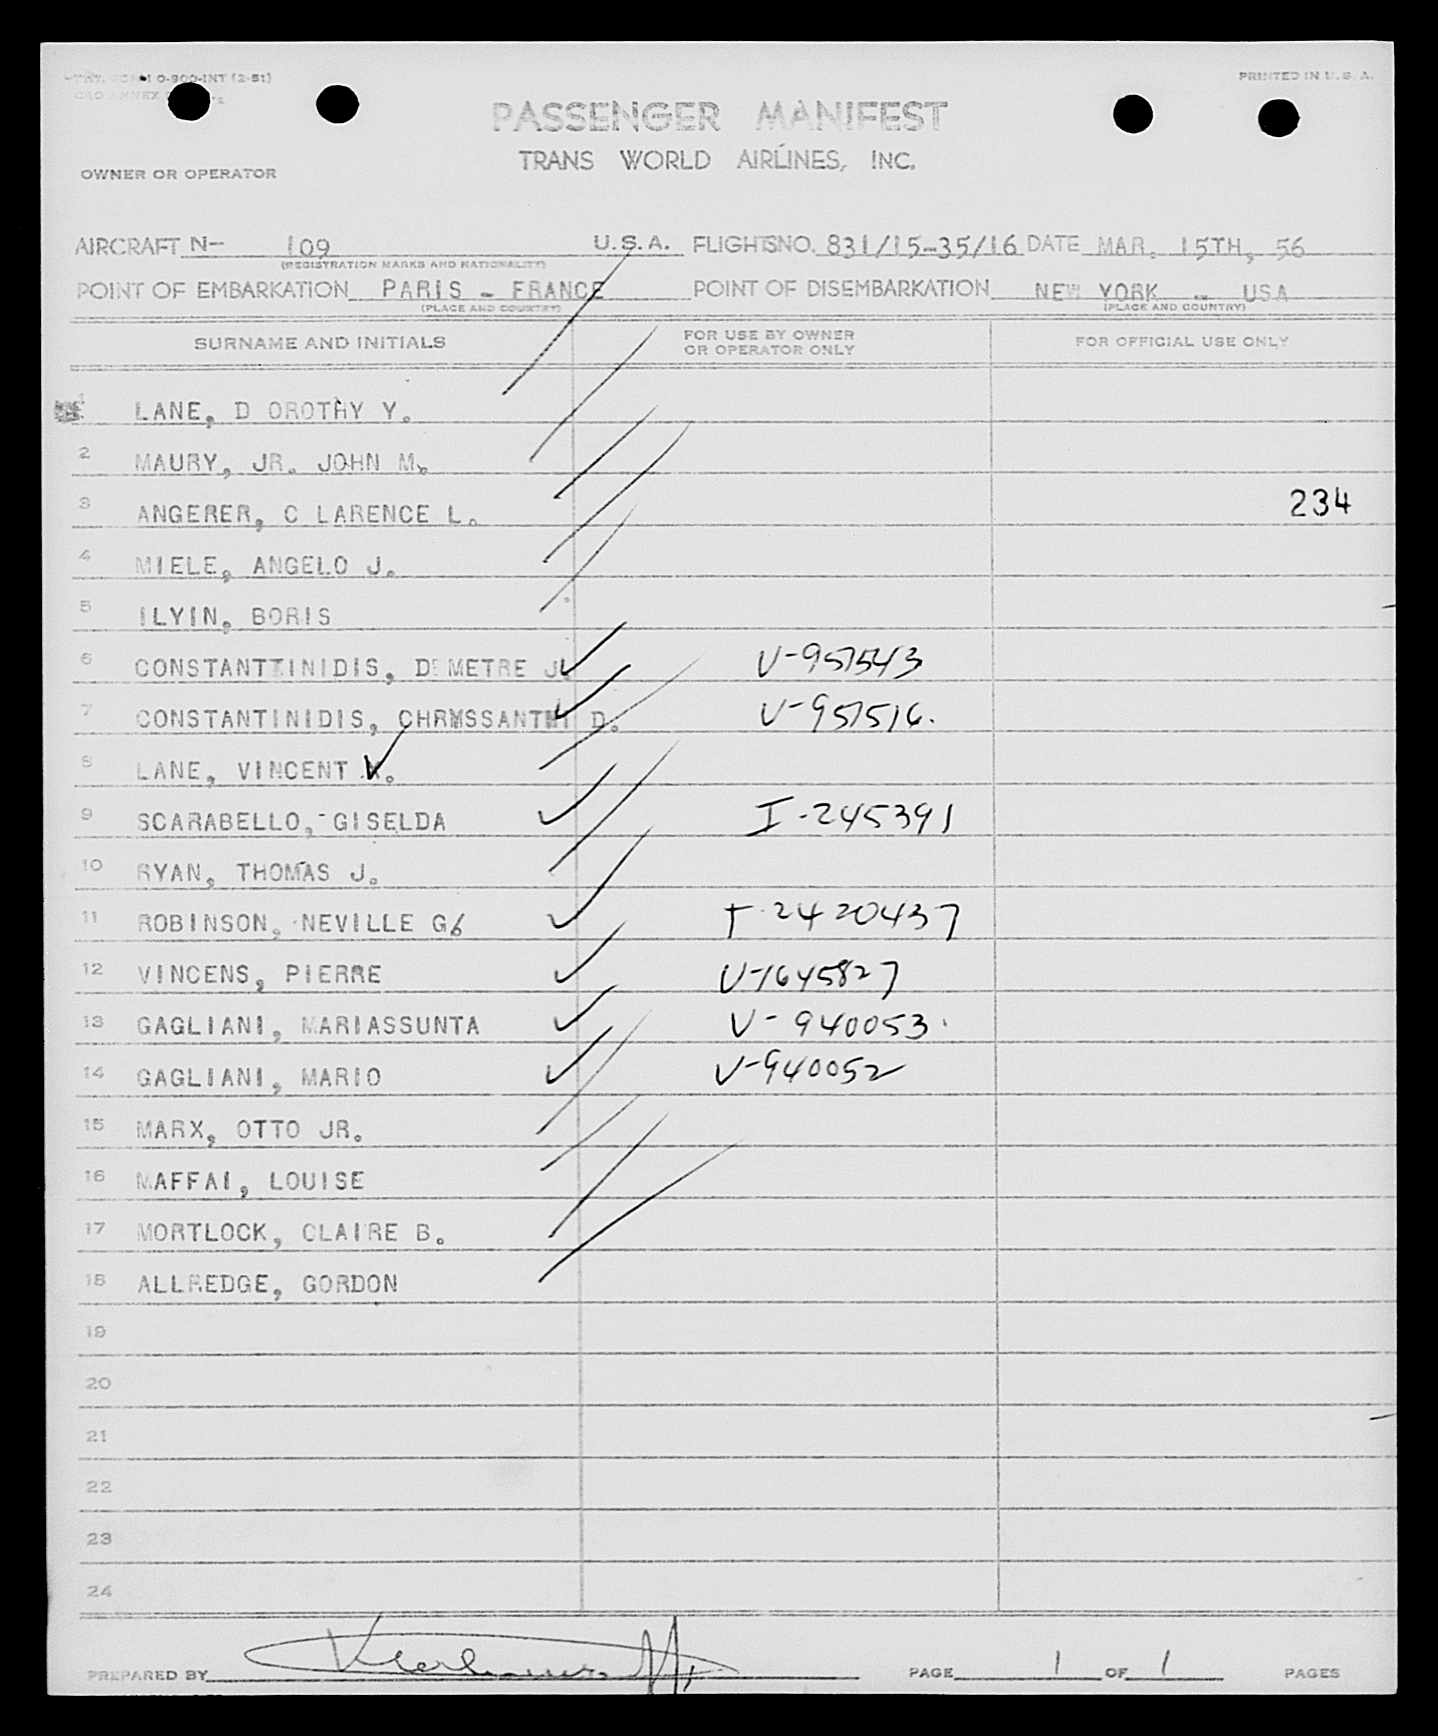 0-900-INT (2-51)
PRINTED IN U. S. A.
PASSENGER MANIFEST
TRANS WORLD AIRLINES, INC.
OWNER OR OPERATOR
AIRCRAFT N- 109 U.S.A. FLIGHTSNO. 831/15-35/16 DATE MAR. 15TH, 56
(REGISTRATION MARKS AND NATIONALITY)
POINT OF EMBARKATION PARIS - FRANCE POINT OF DISEMBARKATION NEW YORK - USA
(PLACE AND COUNTRY) (PLACE AND COUNTRY)
SURNAME AND INITIALS FOR USE BY OWNER OR OPERATOR ONLY FOR OFFICIAL USE ONLY
1 LANE, D OROTHY Y.
2 MAURY, JR. JOHN M.
3 ANGERER, C LARENCE L. 234
4 MIELE, ANGELO J.
5 ILYIN, BORIS
6 CONSTANTINIDIS, DEMETRE J. V-957543
7 CONSTANTINIDIS, D. V-957516.
8 LANE, VINCENT
9 SCARABELLO,-GISELDA I-245391
10 RYAN, THOMAS J.
11 ROBINSON, NEVILLE G. I-2420437
12 VINCENS, PIERRE V-1645827
13 GAGLIANI, MARIASSUNTA V-940053.
14 GAGLIANI, MARIO V-940052
15 MARX, OTTO JR.
16 MAFFAI, LOUISE
17 MORTLOCK, CLAIRE B.
18 ALLREDGE, GORDON
19
20
21
22
23
24
PREPARED BY PAGE 1 OF 1 PAGES